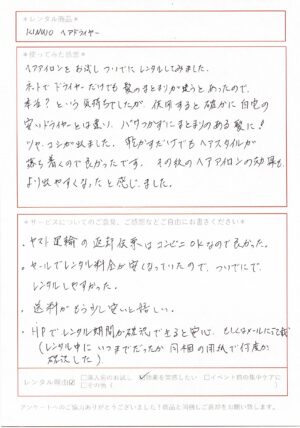 ＊レンタル商品＊
KINUJO ヘアドライヤー
＊使ってみた感想＊
ヘアアイロンをお試しついでにレンタルしてみました。
ネットで ドライヤーだけでも 髪のまとまりが違うとあったので、
本当? という気持ちでしたが、使用すると確かに自宅の
安いドライヤーとは違い、パサつかずにまとまりのある髪に!
ツヤ、コシが出ました。乾かすだけでもヘアスタイルが
落ち着くので良かったです。その後のヘアアイロンの効果も
より出やすくなったと感じました。
＊サービスについてのご意見、ご感想などご自由にお書きください＊
・ヤマト運輸の返却伝票はコンビニOKなので良かった。
・セールでレンタル料金が安くなっていたので、ついでに
レンタルしやすかった。
・送料がもう少し安いと嬉しい。
・HPでレンタル期間が確認できると安心、もしくはメールにて
(レンタル中に いつまでだったか 同梱の用紙で何度か
確認した)
レンタル理由 □購入前のお試し ☑効果を実感したい □イベント前の集中ケアに
□その他（
アンケートへのご協力ありがとうございました！商品と同梱しご返却をお願い致します。